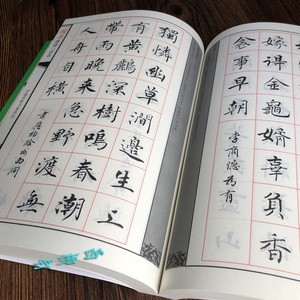 嫁得金龜婿辜負香
衾事早朝
李商隱為有
獨憐幽草澗邊生上
有黃鸝深樹鳴春潮
帶雨晚來急野渡無
人舟自橫
書韋應物滁州西澗